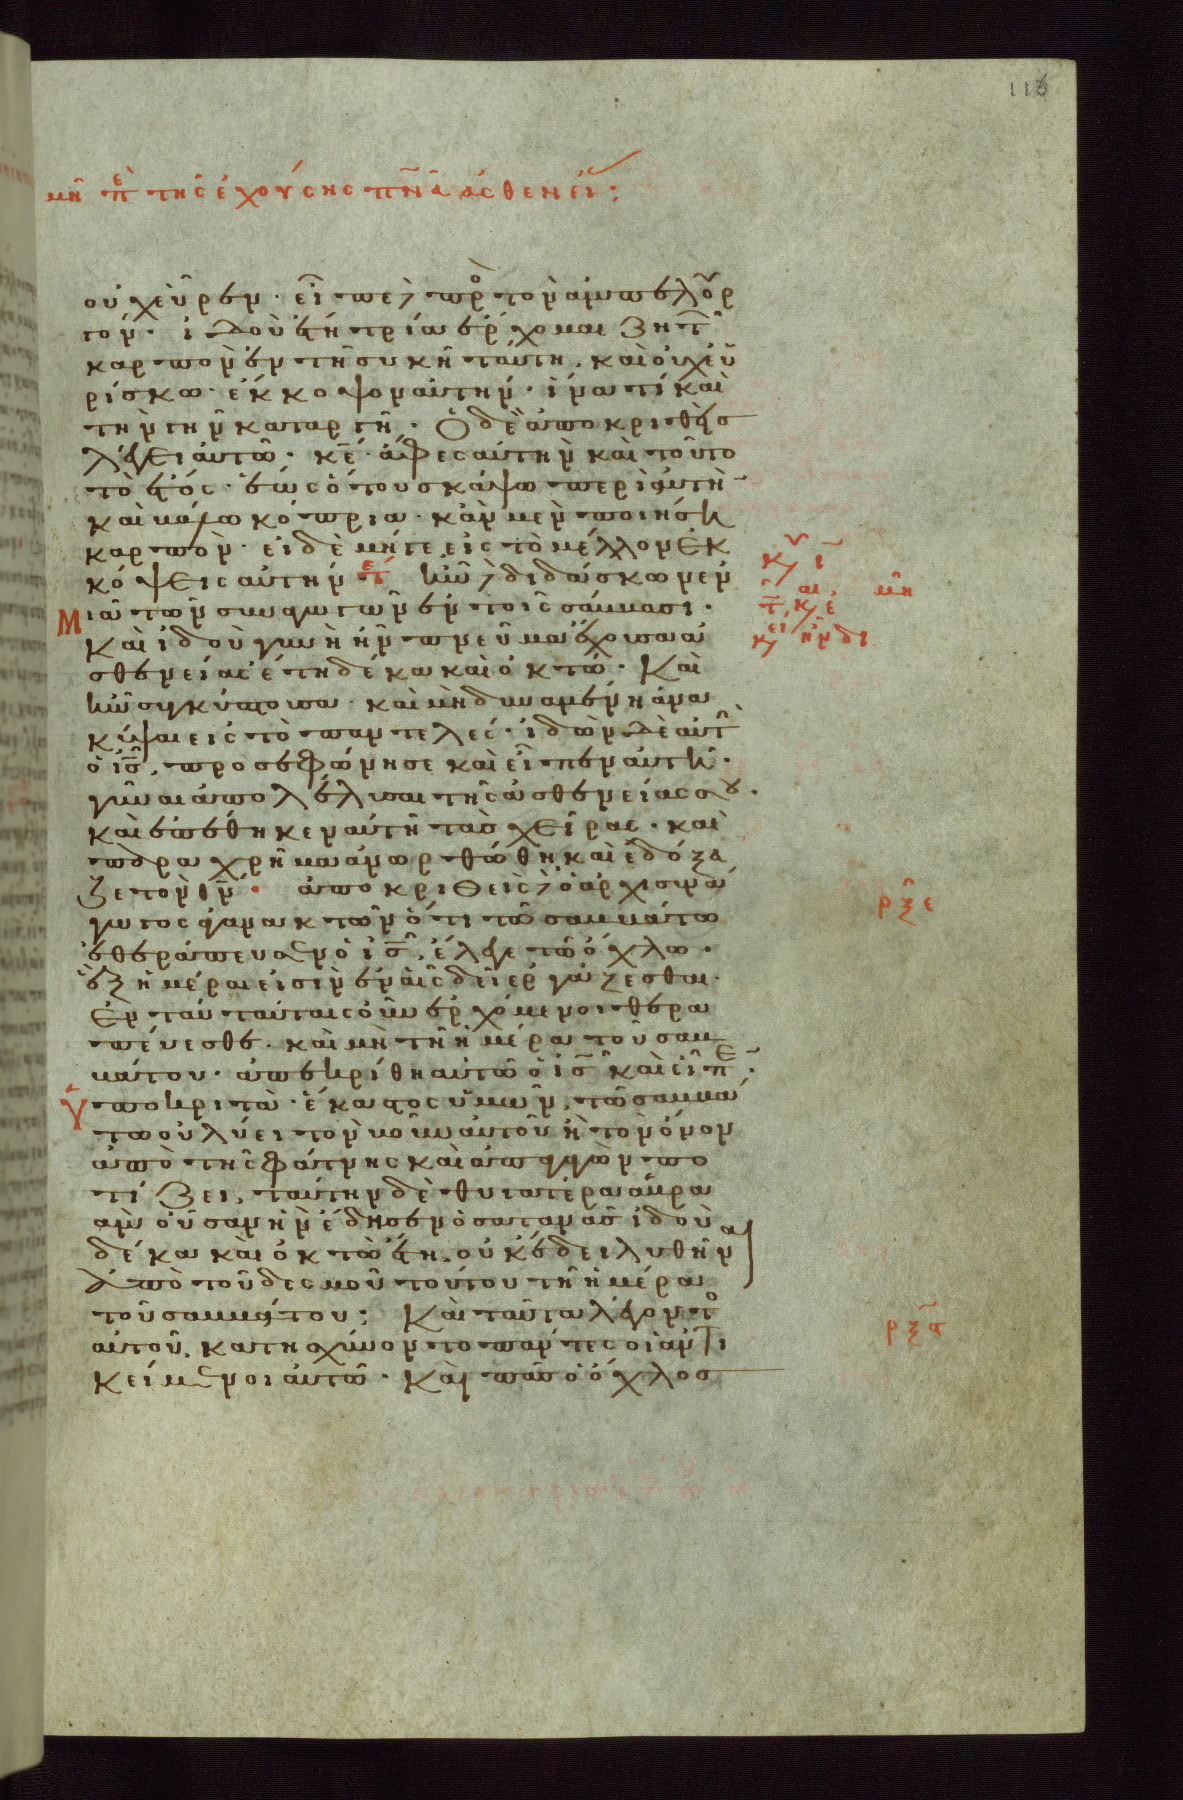 116
μη πε της εχούσης πνα ασθενεί:
οὐχ εὗρεν· εἶπε δὲ πρὸς τὸν ἀμπελουρ
γόν· ἰδοὺ ἔτη τρία ἔρχομαι ζητῶ
καρπὸν ἐν τῇ συκῇ ταύτη, καὶ οὐχ εὑ
ρίσκω· ἔκκοψον αὐτήν· ἱνατί καὶ
τὴν γῆν καταργῆ· Ὁ δὲ ἀποκριθεὶς
λέγει αὐτῶ· κε ἄφες αὐτὴν καὶ τοῦτο
τὸ ἔτος· ἕως ὅτου σκάψω περὶ αὐτὴν
καὶ βάλω κόπρια· κἂν μὲν ποιήση
καρπὸν· εἰ δὲ μήγε, εἰς τὸ μέλλον ἐκ
κόψεις αὐτήν τε ἦν δὲ διδάσκων ἐν
μιᾶ τῶν συναγωγῶν ἐν τοῖς σάββασι·
Καὶ ἰδοὺ γυνὴ ἦν πνεῦμα ἔχουσα ἀ
σθενείας ἔτη δέκα καὶ ὀκτώ· Καὶ
ἦν συγκύπτουσα· καὶ μὴ δυναμένη ἀνα
κύψαι εἰς τὸ παντελές· ἰδὼν δὲ αὐτὴν
ὁ ις, προσεφώνησε καὶ εἶπεν αὐτῆ·
γύναι ἀπολέλυσαι τῆς ἀσθενείας σου·
καὶ ἐπέθηκεν αὐτῆ τὰς χεῖρας· καὶ
παραχρῆμα ἀνωρθώθη καὶ ἐδόξα
ζε τὸν θν· ἀποκριθεὶς δὲ ὁ ἀρχισυνά
γωγος ἀγανακτῶν ὅτι τῶ σαββάτω
ἐθεράπευσεν ὁ ις, ἔλεγε τῶ ὄχλω·
ἓξ ἡμέραι εἰσὶν ἐν αἷς δεῖ ἐργάζεσθαι·
Ἐν ταύταις οὖν ἐρχόμενοι θερα
πεύεσθε· καὶ μὴ τῆ ἡμέρα τοῦ σαβ
βάτου· ἀπεκρίθη αὐτῶ ὁ ις καὶ εἶπε·
Ὑποκριτὰ· ἕκαστος ὑμῶν, τῶ σαββά
τω οὐ λύει τὸν βοῦν αὐτοῦ ἢ τὸν ὄνον
ἀπὸ τῆς φάτνης καὶ ἀπαγαγὼν πο
τίζει, ταύτην δὲ θυγατέρα ἀβρα
ὰμ οὖσαν ἣν ἔδησεν ὁ σατανᾶς ἰδοὺ
δέκα καὶ ὀκτὼ ἔτη, οὐκ ἔδει λυθῆναι
Ἀπὸ τοῦ δεσμοῦ τούτου τῆ ἡμέρα
τοῦ σαββάτου; Καὶ ταῦτα λέγοντος
αὐτοῦ, κατησχύνοντο πάντες οἱ ἀντι
κείμενοι αὐτῶ· Καὶ πᾶς ὁ ὄχλος
ρξε
ρξς